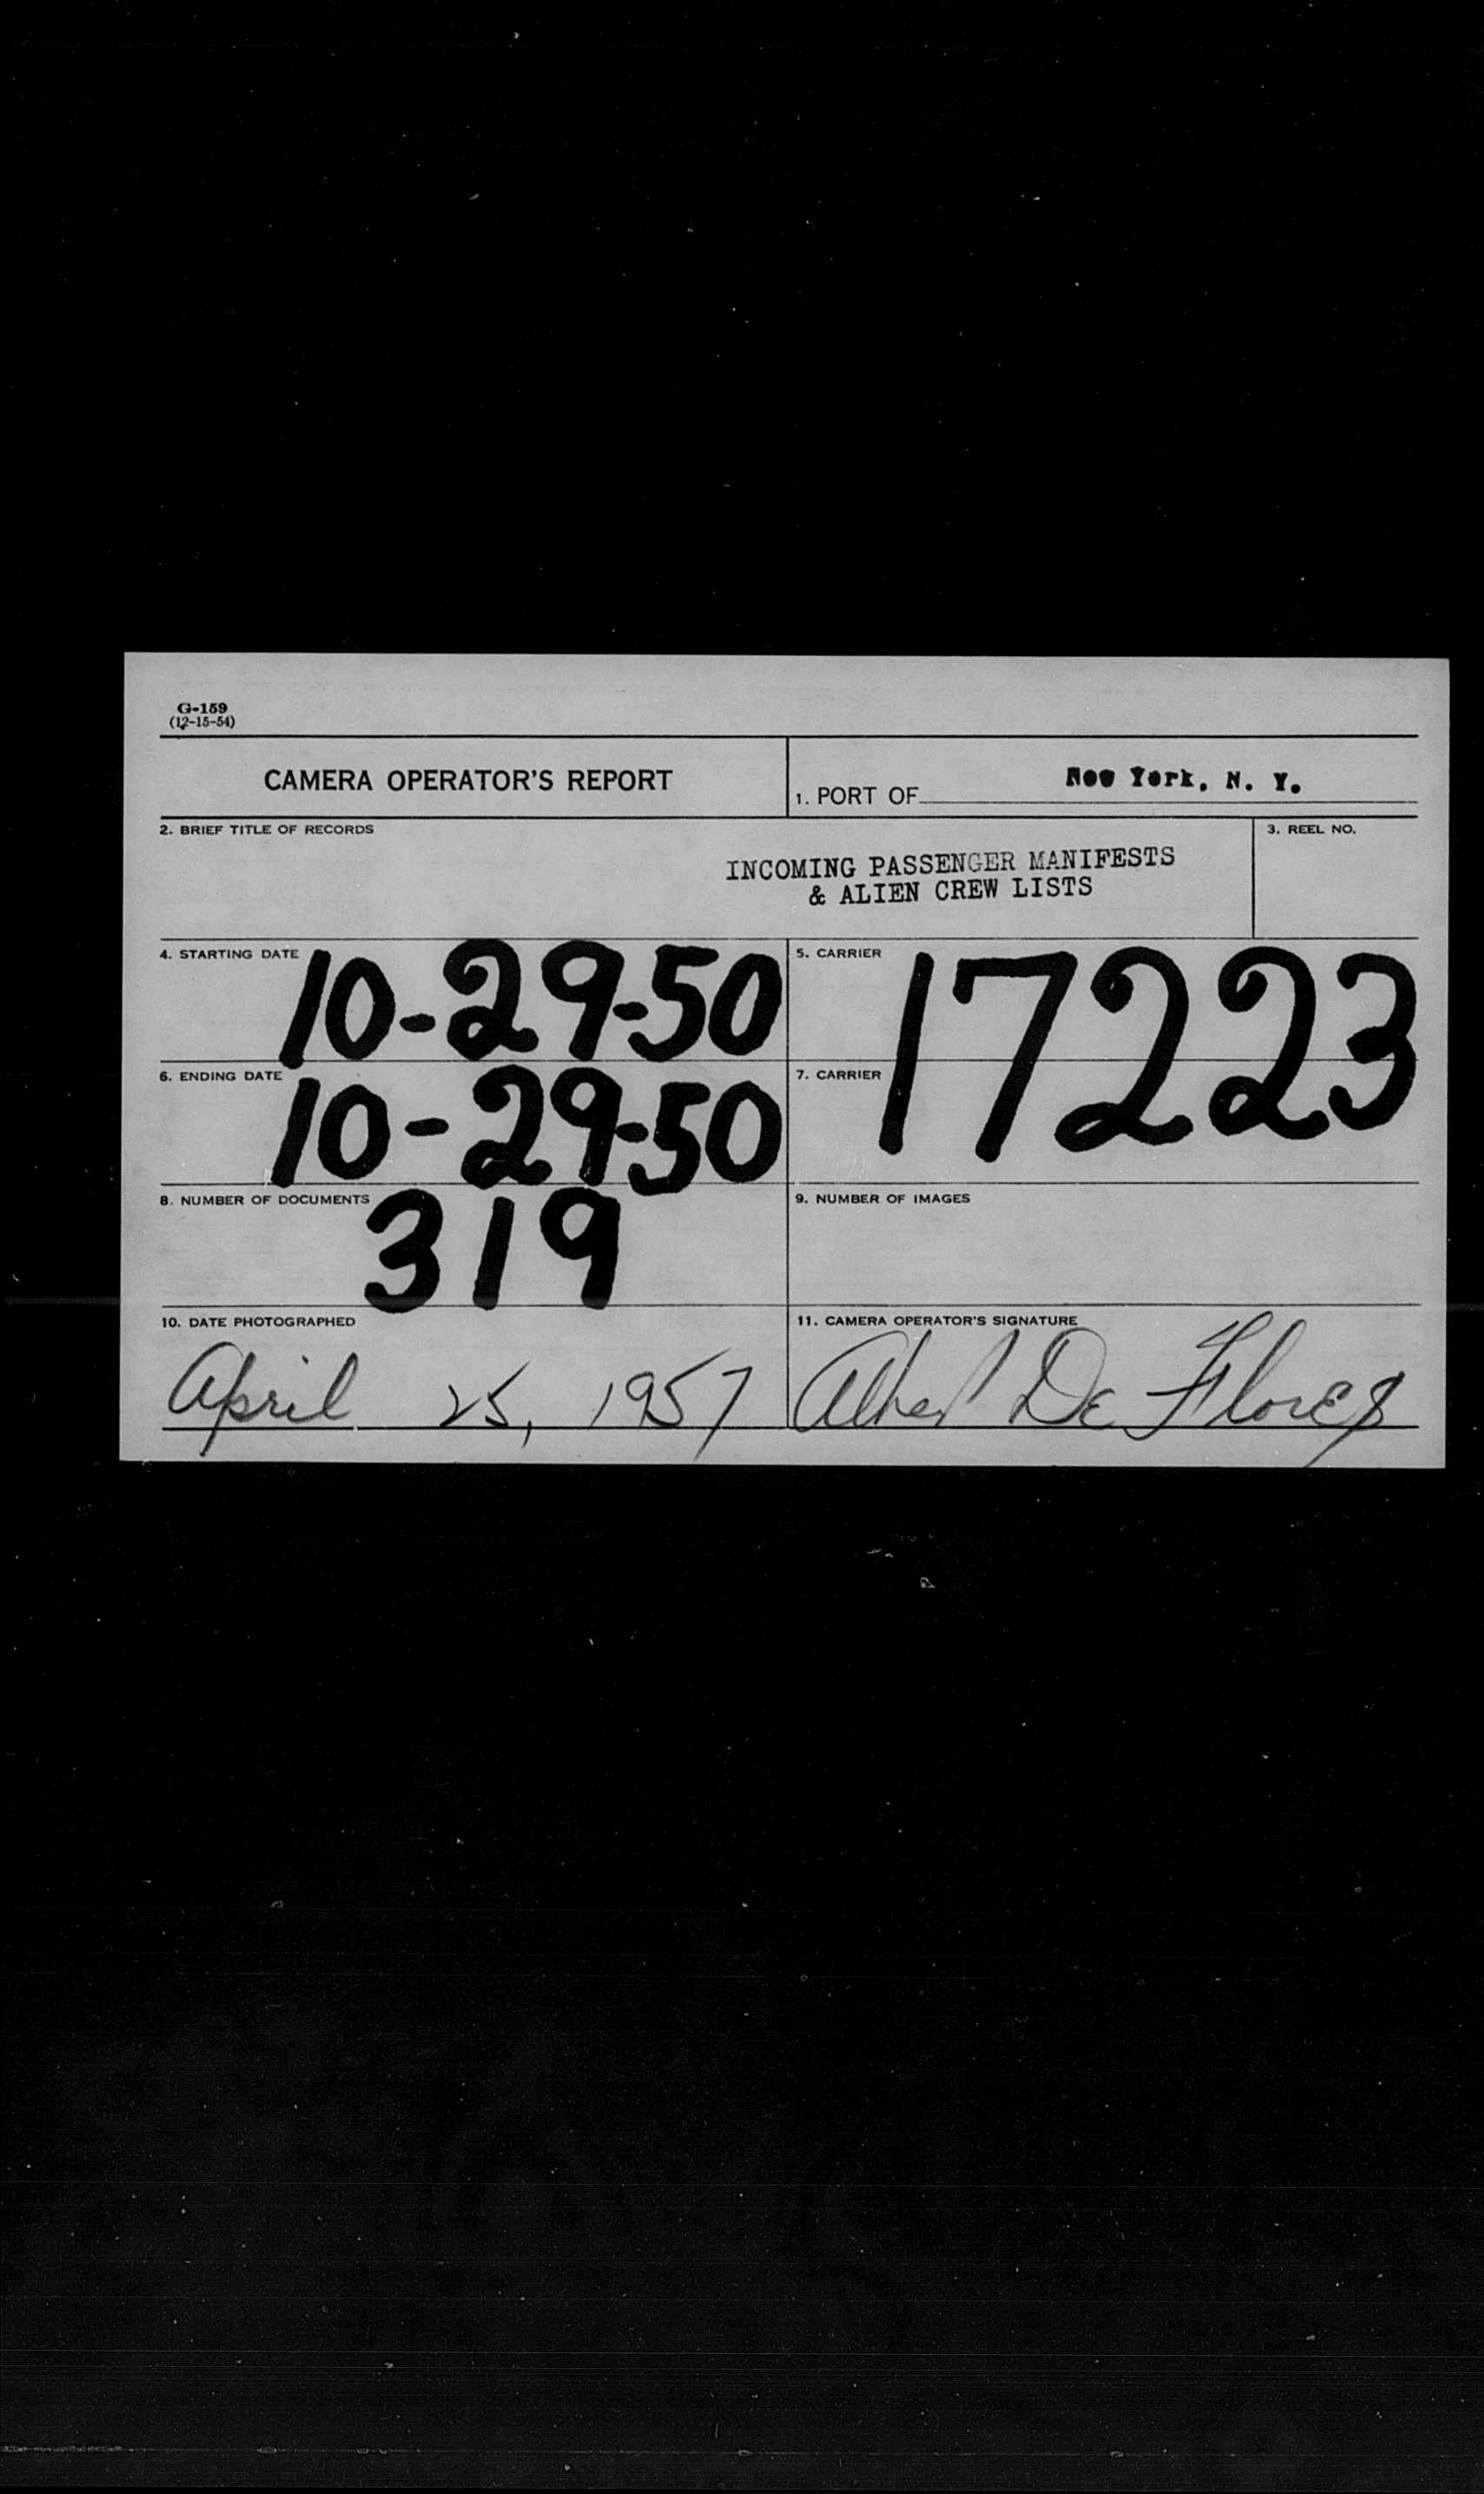 G-159
(12-15-54)
CAMERA OPERATOR'S REPORT
1. PORT OF New York, N. Y.
2. BRIEF TITLE OF RECORDS
INCOMING PASSENGER MANIFESTS
& ALIEN CREW LISTS
3. REEL NO.
4. STARTING DATE 10-29-50
5. CARRIER 17223
6. ENDING DATE 10-29-50
7. CARRIER
8. NUMBER OF DOCUMENTS 319
9. NUMBER OF IMAGES
10. DATE PHOTOGRAPHED
April 25, 1957
11. CAMERA OPERATOR'S SIGNATURE
De Flores